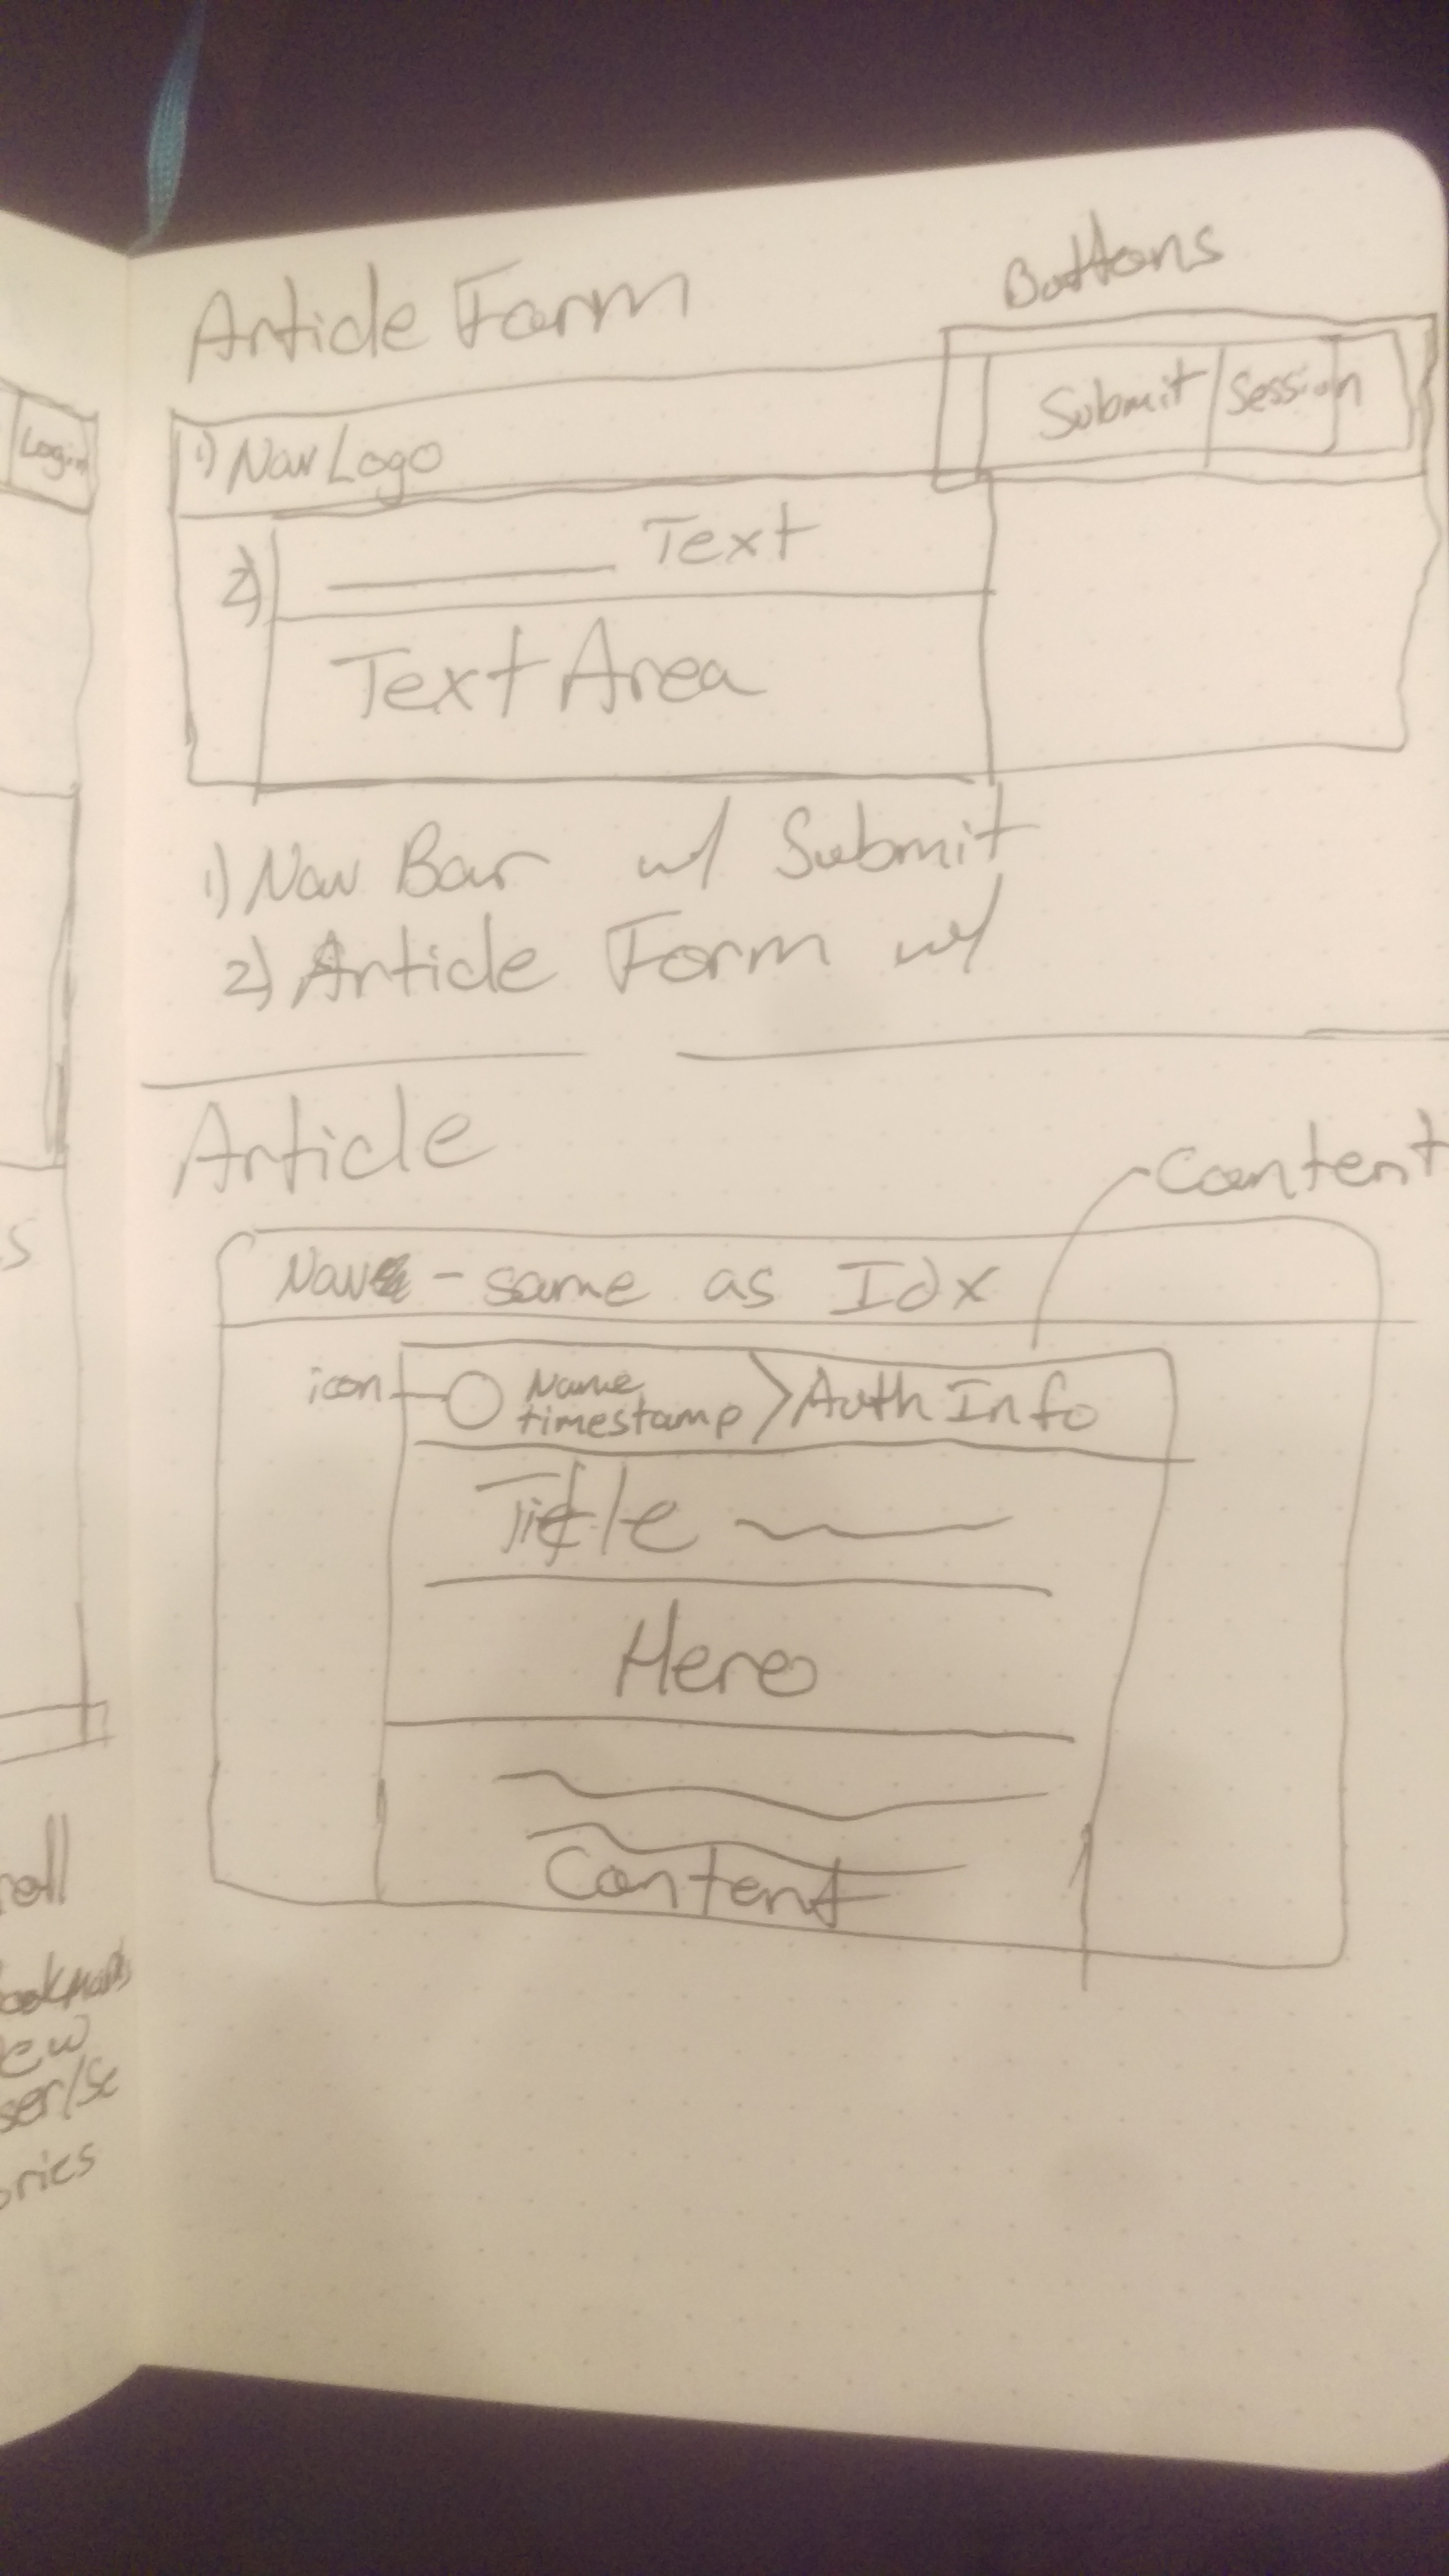 Login
s
roll
ookmarks
ew
ser/Se
ories
Article Form
Buttons
1) Nav Logo
Submit
Session
2)
Text
Text Area
1) Nav Bar w/ Submit
2) Article Form w/
Article
Content
Nav - same as Idx
icon
Name
timestamp
Auth Info
Title
Hero
Content